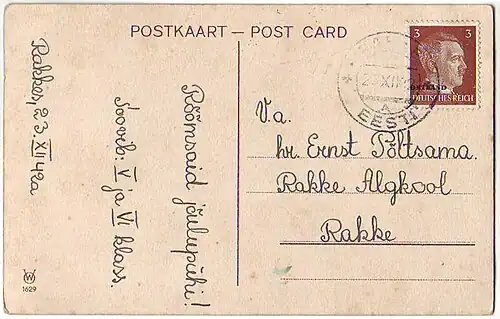 POSTKAART — POST CARD
Rakkes, 23. XII 42a
Soovib: V ja VI klass.
Rõõmsaid jõulupühi!
3 3
OSTLAND
DEUTSCHES REICH
23 XII
A
EESTI
V a.
hr. Ernst Põltsama.
Rakke Algkool
Rakke
W
1629